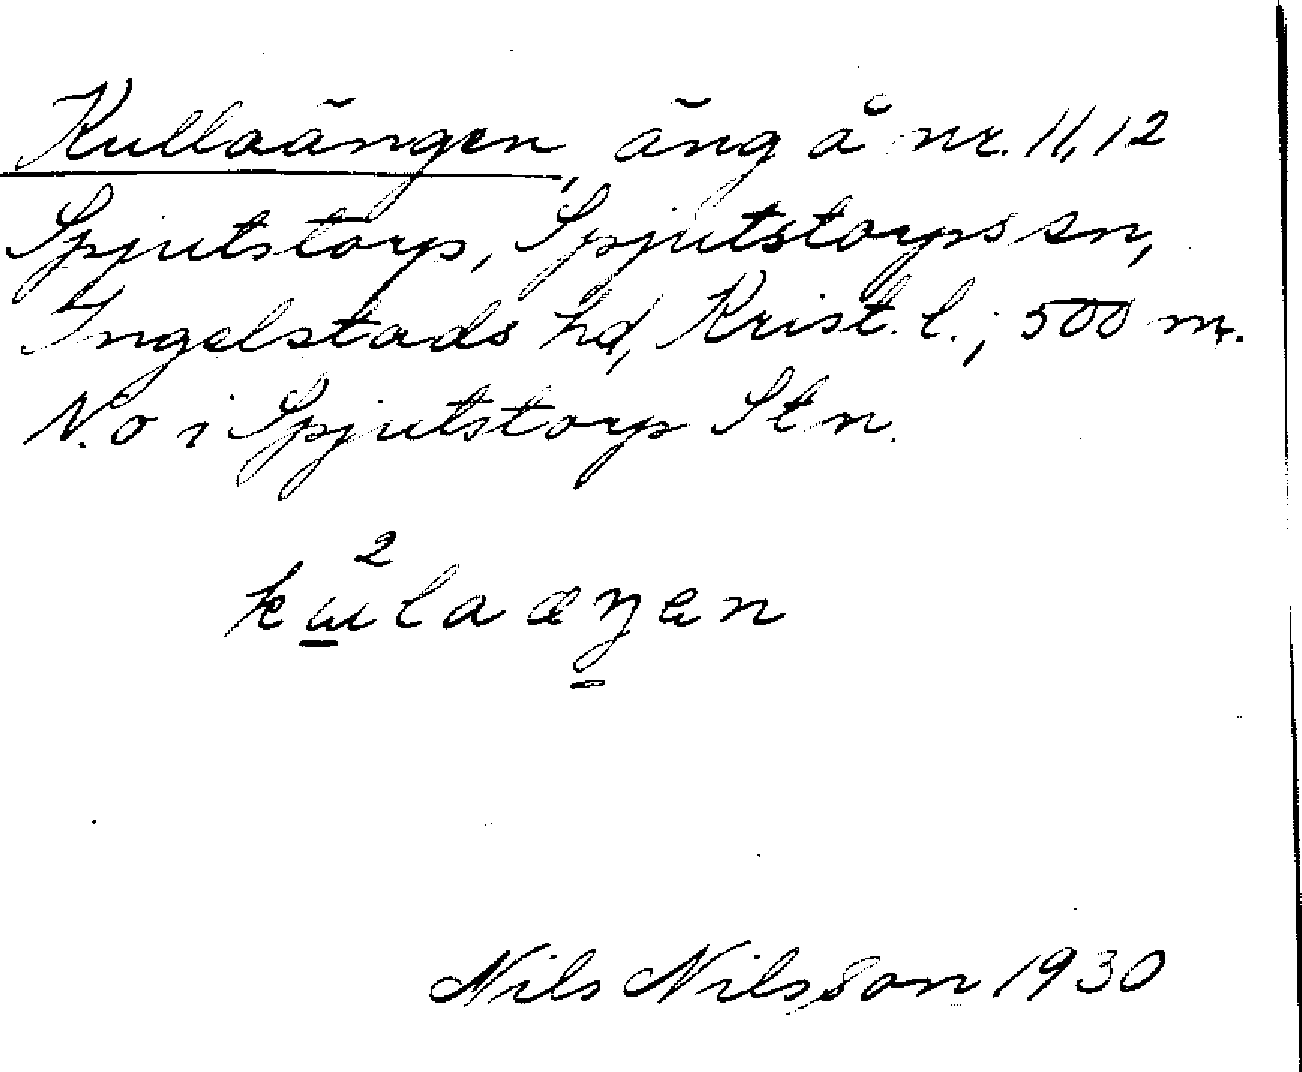 Kullaängen, äng å nr. 11, 12
Spjutstorp, Spjutstorps sn,
Ingelstads hd, Krist. l.; 500 m.
N. o i Spjutstorp Stn.
2
kɯlaæŋæn
Nils Nilsson 1930